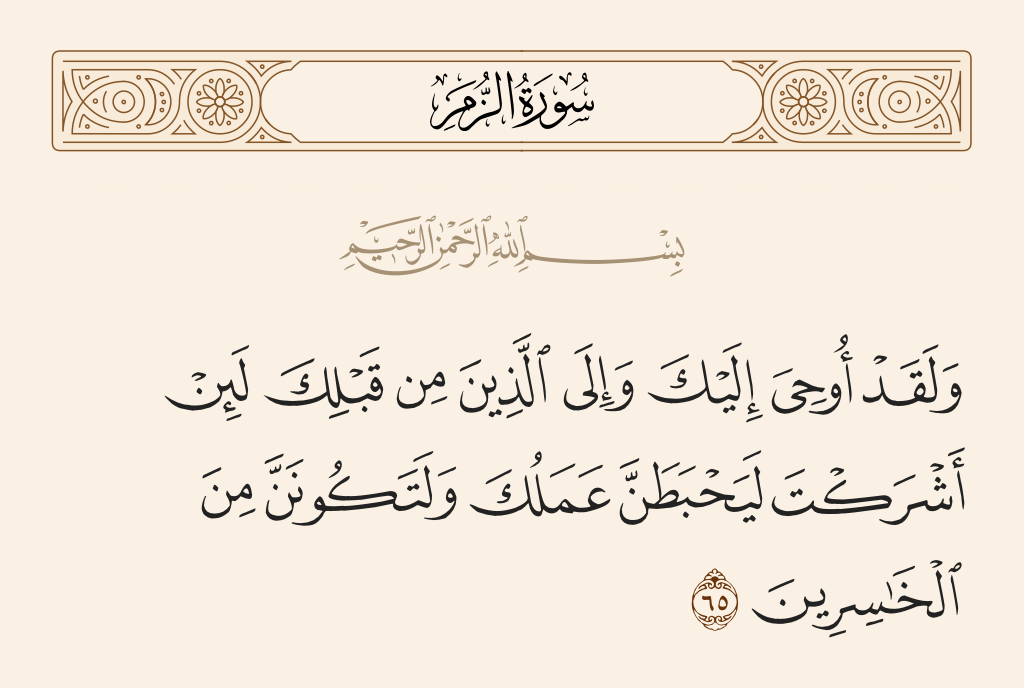 سُورَةُ الزُّمَرِ
بِسْمِ ٱللَّهِ ٱلرَّحْمَٰنِ ٱلرَّحِيمِ
وَلَقَدْ أُوحِىَ إِلَيْكَ وَإِلَى ٱلَّذِينَ مِن قَبْلِكَ لَئِنْ
أَشْرَكْتَ لَيَحْبَطَنَّ عَمَلُكَ وَلَتَكُونَنَّ مِنَ
ٱلْخَٰسِرِينَ ٦٥